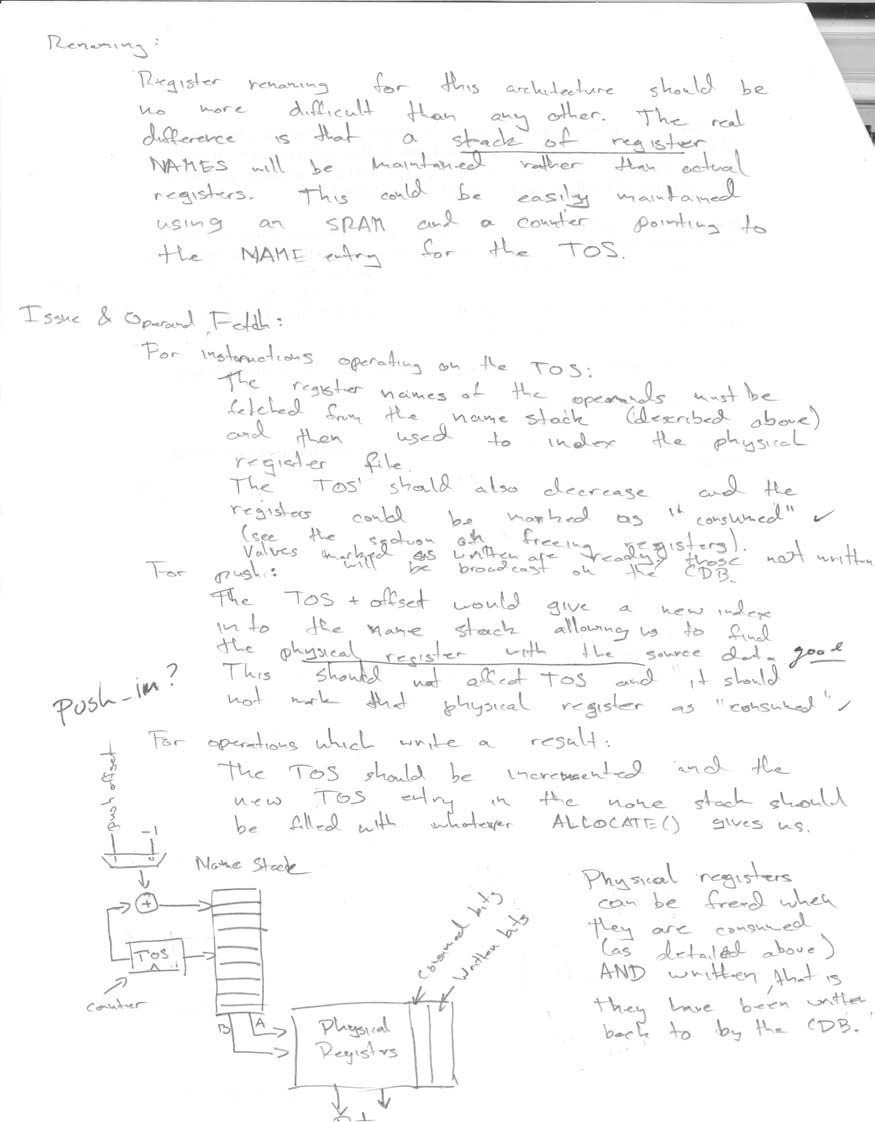 Renaming:
Register renaming for this architecture should be
no more difficult than any other. The real
difference is that a stack of register
NAMES will be maintained rather than actual
registers. This could be easily maintained
using an SRAM and a counter pointing to
the NAME entry for the TOS.
Issue & Operand Fetch:
For instructions operating on the TOS:
The register names of the operands must be
fetched from the name stack (described above)
and then used to index the physical
register file.
The TOS should also decrease and the
registers could be marked as "consumed" ✓
(see the section on freeing registers).
Values marked as written are ready, those not written
will be broadcast on the CDB.
For push:
The TOS + offset would give a new index
in to the name stack allowing us to find
the physical register with the source data. good
This should not affect TOS and it should
not mark that physical register as "consumed". ✓
Push-im?
For operations which write a result:
The TOS should be incremented and the
new TOS entry in the name stack should
be filled with whatever ALLOCATE() gives us.
push offset
-1
Name Stack
+
TOS
counter
B A
Physical
Registrs
Consumed bits
Written bits
Physical registers
can be freed when
they are consumed
(as detailed above)
AND written, that is
they have been written
back to by the CDB.